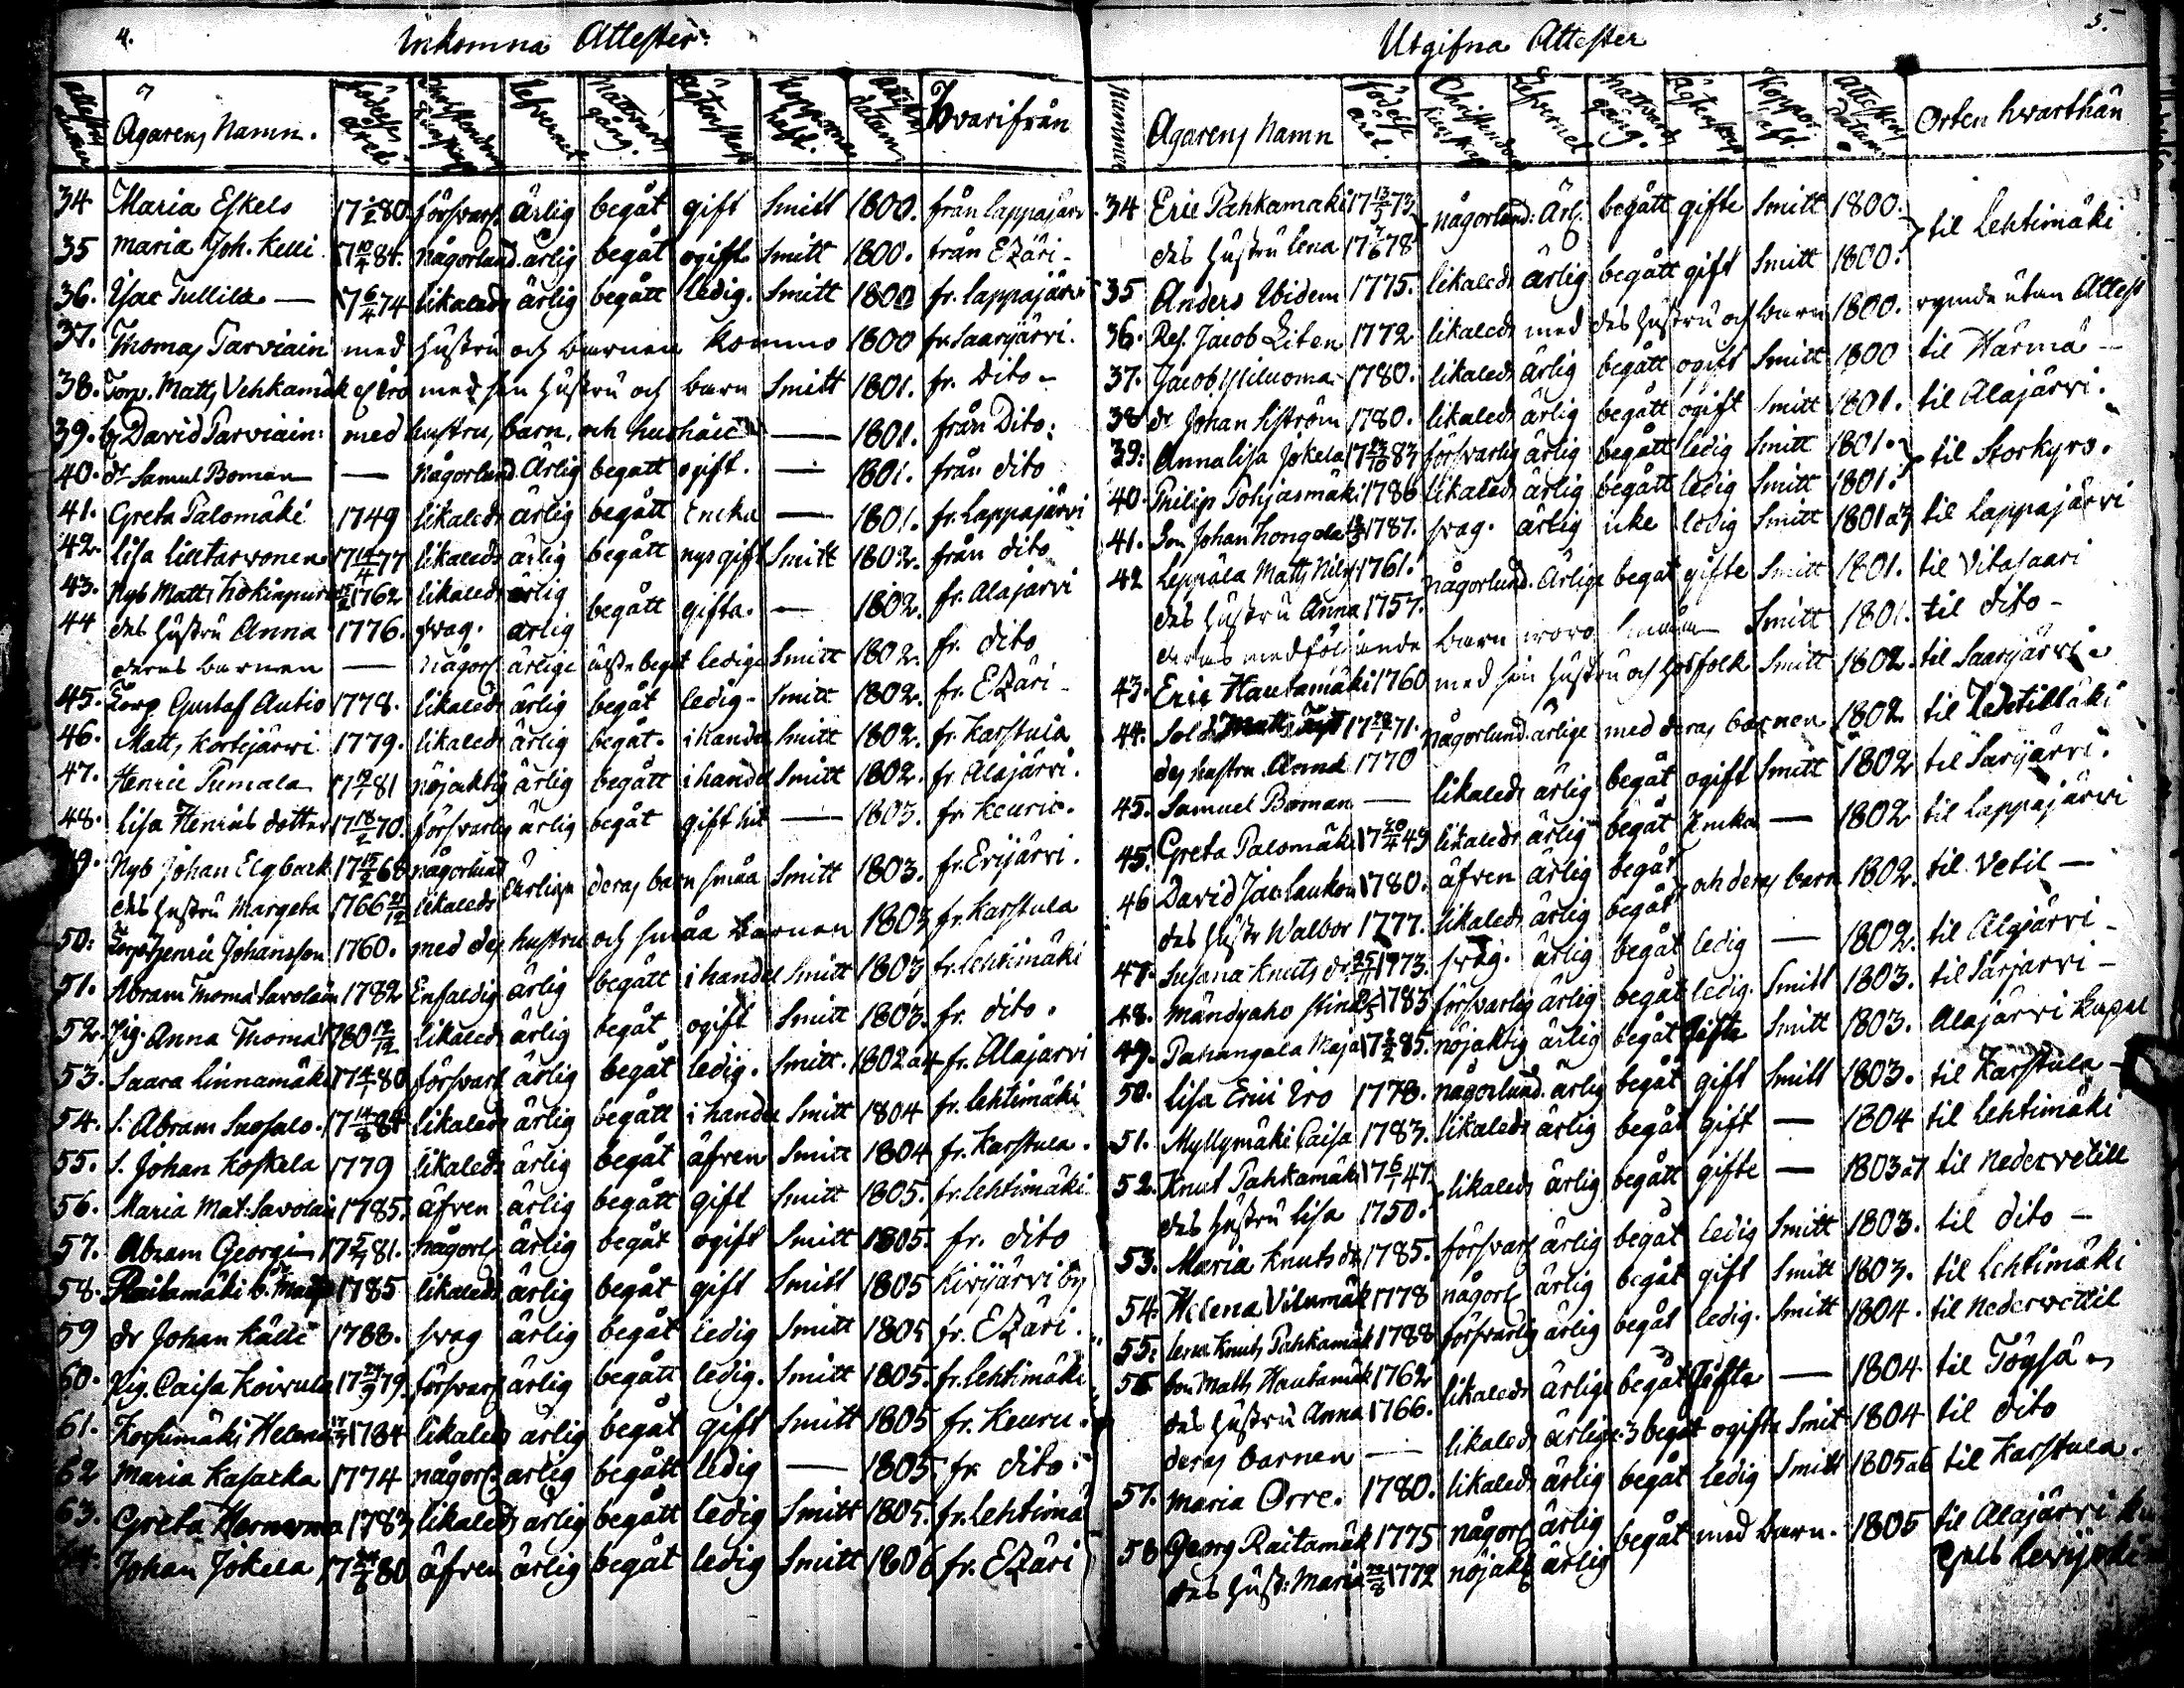 4.
Inkomna Attester
Attestens Nummer Ägarens Namn. Födelse året Christendoms kunskap Lefvernet Nattvards gång. Äktenskap Kopporne haft. Attestens datum Hvarifrån
34 Maria Eskels 17 2/2 80 försvarl ärlig begåt gift Smitt 1800. från Lappajärv
35 Maria Joh. Kelli 17 10/4 84. någorlund. ärlig begåt ogift Smitt 1800. från Ezäri
36. Isac Tullila 17 6/4 74 likaleds ärlig begått ledig. Smitt 1800 fr. Lappajärvi
37. Thomas Tarviain med hustru och barnen kommo 1800 fr. Saarijärvi.
38. Torp. Matts Vehkamäk med sin hustru och barn Smitt 1801. fr. Dito
39. David Tarviain: med hustru, barn, och hushåll — 1801. från Dito:
40. dr Samuel Boman — någorlund. Ärlig begått ogift. — 1801. från dito
41. Greta Palomäki 1749 likaleds ärlig begått Encka — 1801. fr. Lappajärvi
42. Lisa 17 14/4 77 likaleds ärlig begått nys gift Smitt 1802. från dito
43. Nyb Matts 1762 likaleds ärlig begått gifta. — 1802. fr. Alajärvi
44 des hustru Anna 1776. svag. ärlig
deras barnen — någorl ärlige begåt ledige Smitt 1802. fr. dito
45. Torp Gustaf Autio 1778. likaleds ärlig begåt ledig. Smitt 1802. fr. Ezäri
46. Matts Kortejärvi 1779. likaleds ärlig begåt. i handel Smitt 1802. fr. Karstula
47. Henric Tumala 81 nöjaktig ärlig begått i handel Smitt 1802. fr. Alajärvi.
48. Lisa Henriks dotter 17 18/2 70. försvarlig ärlig begåt gift hit — 1803. fr. Keuric.
49. Nyb Johan Elgback 17 15/2 68 någorlund Ärlige deras barn små Smitt 1803. fr. Evijärvi.
des hustru Margeta 1766 21/12 likaleds
50. Torp Henric Johansson 1760. med des hustru och små barnen 1803 fr. Karstula
51. Abram Thoma Savolain 1782 Enfaldig ärlig begått i handel Smitt 1803 fr. Lehtimäki
52. Pig. Anna Thomas 1780 12/12 likaleds ärlig begåt ogift Smitt 1803. fr. dito.
53. Saara Linnamäki 17 4/1 80 försvarl ärlig begåt ledig. Smitt. 1802 a 4 fr. Alajärvi
54. S. Abram Suosalo. 17 14/3 84 likaleds ärlig begått i handel Smitt 1804 fr. Lehtimäki
55. S. Johan Koskela 1779 likaleds ärlig begåt äfven Smitt 1804 fr. Karstula.
56. Maria Mat. Savolain 1785. äfven ärlig begått gift Smitt 1805. fr. Lehtimäki
57. Abram Georgi 17 5/7 81. någorl ärlig begåt ogift Smitt 1805. fr. dito
58. Raitamäki 1785 likaleds ärlig begåt gift Smitt 1805 Kivijärvi by
59 dr Johan Källi 1788. svag ärlig begåt ledig Smitt 1805 fr. Ezäri.
60. Pig. Caisa Koivula 17 29/9 79. försvarl ärlig begått ledig. Smitt 1805. fr. Lehtimäki
61. Korpimäki Helena 1784 likaleds ärlig begåt gift Smitt 1805 fr. Keuru.
62 Maria Kasacka 1774 någorl ärlig begått ledig — 1805 fr. dito.
63. Greta 1783 likaleds ärlig begått ledig Smitt 1805. fr. Lehtimä
64. Johan Jokela 17 24/6 80 äfven ärlig begåt ledig Smitt 1806 fr. Ezäri
5.
Utgifna Attester
Nummer Ägarens Namn Födelse året. Christendoms kunskap Lefvernet Nattvards gång. Ägtenskap Koppor haft. Attestens Datum Orten hvarthän
34 Eric Pahkamäki 17 13/5 73 någorlund: Ärl. begått gifte Smitt 1800. til Lehtimäki
des hustru Lena 17 7/6 78
35 Anders Ibidem 1775. likaleds ärlig begått gift Smitt 1800.
36. Ref. Jacob Liten 1772 likaleds med des hustru och barn 1800. rymde utan Attest
37. Jacob Yliluoma 1780. likaleds ärlig begått ogift Smitt 1800 til Härmä
38 dr Johan Siström 1780. likaleds ärlig begått ogift Smitt 1801. til Alajärvi.
39: Annalisa Jokela 83 försvarlig ärlig begått ledig Smitt 1801. til Storkyro.
40. Philip Pohjasmäki 1786 likaleds ärlig begått ledig Smitt 1801.
41. Son Johan Hongola 1787. svag. ärlig icke ledig Smitt 1801 a 3 til Lappajärvi
42 Leppälä Matts Nils 1761. någorlund. Ärlige begåt gifte Smitt 1801. til Vitasaari
des hustru Anna 1757.
deras medföljande barn woro Smitt 1801. til dito
43. Eric Hautamäki 1760 med sin hustru och husfolk Smitt 1802. til Saarijärvi
44. Sold Matts 17 71. någorlund. ärlige med deras barnen 1802 til Lehtimäki
des hustru Anna 1770
45. Samuel Boman — likaleds ärlig begåt ogift Smitt 1802 til Sarijärvi.
45. Greta Palomäki 17 20/4 49 likaleds ärlig begåt Encka — 1802 til Lappajärvi
46 David Jac Laukon 1780. äfven ärlig begåt och deras barn 1802. til Vetil
des hustr Walbor 1777. likaleds ärlig begåt
47. Susana Knuts dr 25/11 1773. svag. ärlig begåt ledig — 1802. til Alajärvi
48. Mändyaho Stina 1783 försvarlig ärlig begåt ledig. Smitt 1803. til Sarjarvi
49. Pahangala Maja 17 2/2 85. nöjaktig ärlig begåt Gifta Smitt 1803. Alajärvi Kapel
50. Lisa Erici Iro 1778. någorlund. ärlig begåt gift Smitt 1803. til Karstula
51. Myllymäki Caisa 1783. likaleds ärlig begåt gift — 1804 til Lehtimäki
52. Knut Pahkamäki 17 6/1 47. likaleds ärlig begått gifte — 1803 a 7 til Nedervetill
des hustru Lisa 1750.
53. Maria Knuts dr 1785. försvarl ärlig begåt ledig Smitt 1803. til dito
54. Helena Vilumäk 1778 någorl ärlig begåt gift Smitt 1803. til Lehtimäki
55. Lena Knuts Pahkamäk 1788 försvarlig ärlig begåt ledig. Smitt 1804. til Nedervetil
56 Bon Matts Hautamäk 1762 likaleds ärlige begåt Gifta — 1804 til Tögsä
des hustru Anna 1766.
deras barnen — likaleds ärlige. 3 begåt ogifte Smit 1804 til dito
57. Maria Orre. 1780. likaleds ärlig begåt ledig Smitt 1805 a 6 til Karstula.
58 Georg Raitamäk 1775 någorl ärlig begåt med barn. 1805 til Alajärvi
des hust: Maria 29/8 1772 nöjakt ärlig